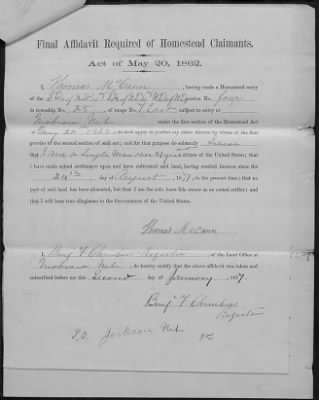 Final Affidavit Required of Homestead Claimants.
Act of May 20, 1862.
I, Thomas McCann, having made a Homestead entry
of the section No. four
in township No. 28, of range No. 7 East subject to entry at
Niobrara Neb under the first section of the Homestead Act
of May 20 1862 do now apply to perfect my claim thereto by virtue of the first
proviso to the second section of said act; and for that purpose do solemnly
that I am a Single Man over 21 years citizen of the United States; that I
have made actual settlement upon and have cultivated said land, having resided thereon since the
24th day of August, 1871, to the present time; that no
part of said land has been alienated, but that I am the sole bona fide owner as an actual settler; and
that I will bear true allegiance to the Government of the United States.
Thomas McCann
I, Benj F Chambers Register of the Land Office at
Niobrara Neb, do hereby certify that the above affidavit was taken and
subscribed before me this Second day of January 1877.
Benj F Chambers
Register
P.O. Jackson Neb